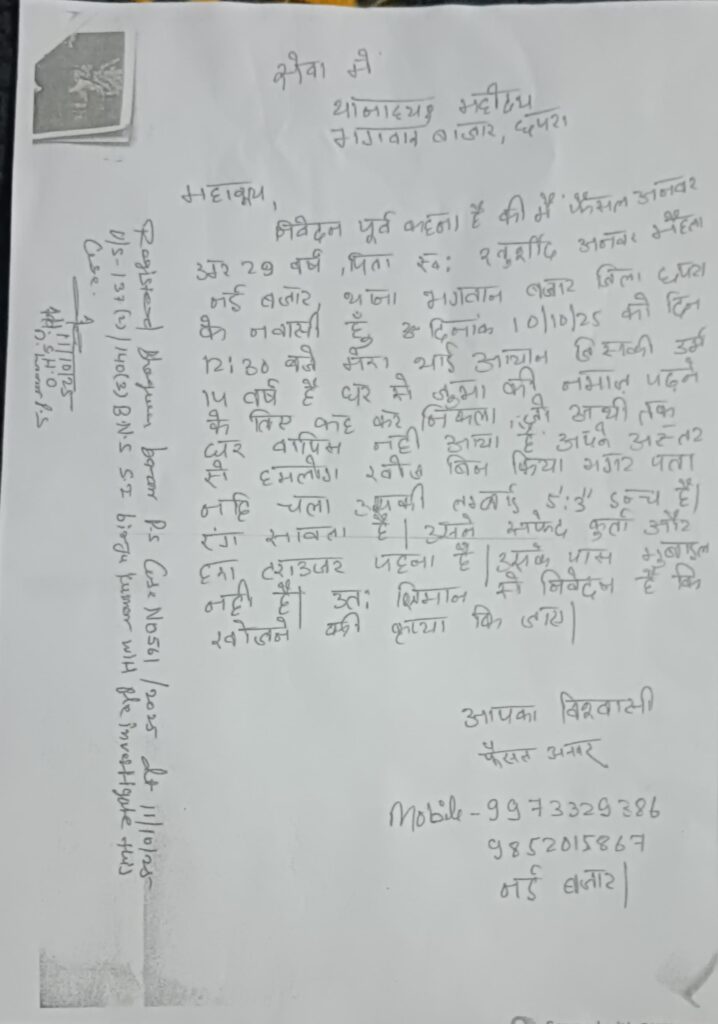 सेवा में
थानाध्यक्ष महोदय
भगवान बाजार, छपरा
महाशय,
निवेदन पूर्व कहना है की मैं फैसल अनवर
उम्र 29 वर्ष, पिता स्व: खुर्शीद अनवर मोहल्ला
नई बजार, थाना भगवान बजार जिला छपरा
के नवासी हूँ दिनांक 10/10/25 को दिन
12:30 बजे मेरा भाई आयान जिसकी उर्म
14 वर्ष है घर से जुमा की नमाज पढ़ने
के लिए कह कर निकला, जो अभी तक
घर वापिस नही आया है अपने अस्तर
से हमलोग खोज बिन किया मगर पता
नहि चला उसकी लम्बाई 5':3" इन्च है|
रंग सावला है| उसने सफेद कुर्ता और
हरा ट्राउजर पहना है| उसके पास मुबाइल
नही है| अत: श्रिमान से निवेदन है कि
खोजने की कृप्या कि जाए|
आपका विश्वासी
फैसल अनवर
Mobile - 9973329386
9852015867
नई बजार|
Registered Bhagwan bazar P.S Case No 561/2025 dt 11/10/25
U/S-137(2)/140(3) B.N.S SI Kumar will investigate this
Case.
11/10/25
S.H.O
P.S